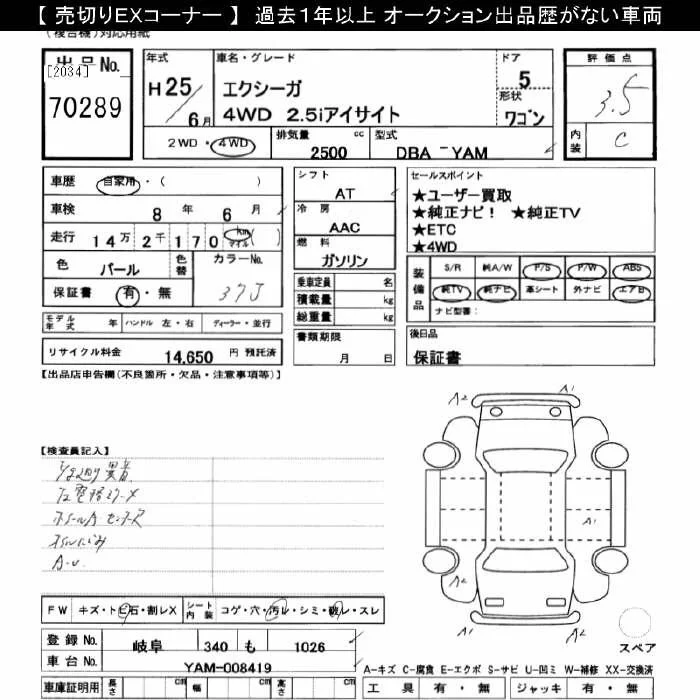 【 売切りEXコーナー 】 過去1年以上 オークション出品歴がない車両
(複合機)対応用紙
出品No. [2034] 70289
年式 H25/6月
車名・グレード エクシーガ 4WD 2.5iアイサイト
ドア 5
形状 ワゴン
評価点 3.5
内装 C
2WD・4WD
排気量 2500 cc
型式 DBA - YAM
車歴 自家用・( )
車検 8年 6月
走行 14万2千170 km マイル ( )
色 パール 色替 カラーNo. 37J
保証書 有・無
モデル年式 年 ハンドル 左・右 ディーラー・並行
リサイクル料金 14,650 円 預託済
シフト AT
冷房 AAC
燃料 ガソリン
乗車定員 名
積載量 kg
総重量 kg
書類期限 月 日
セールスポイント
★ユーザー買取
★純正ナビ! ★純正TV
★ETC
★4WD
装備品 S/R 純A/W P/S P/W ABS
純TV 純ナビ 革シート 外ナビ エアB
ナビ型番:
後日品
保証書
【出品店申告欄(不良箇所・欠品・注意事項等)】
【検査員記入】
異音
A2 A1
A1
A2 A2
スペア
FW キズ・トビ石・割レX シート内装 コゲ・穴・汚レ・シミ・破レ・スレ
登録No. 岐阜 340 も 1026
車台No. YAM-008419
車庫証明用 長さ cm 幅 cm 高さ cm
A-キズ C-腐食 E-エクボ S-サビ U-凹ミ W-補修 XX-交換済
工具 有・無 ジャッキ 有・無